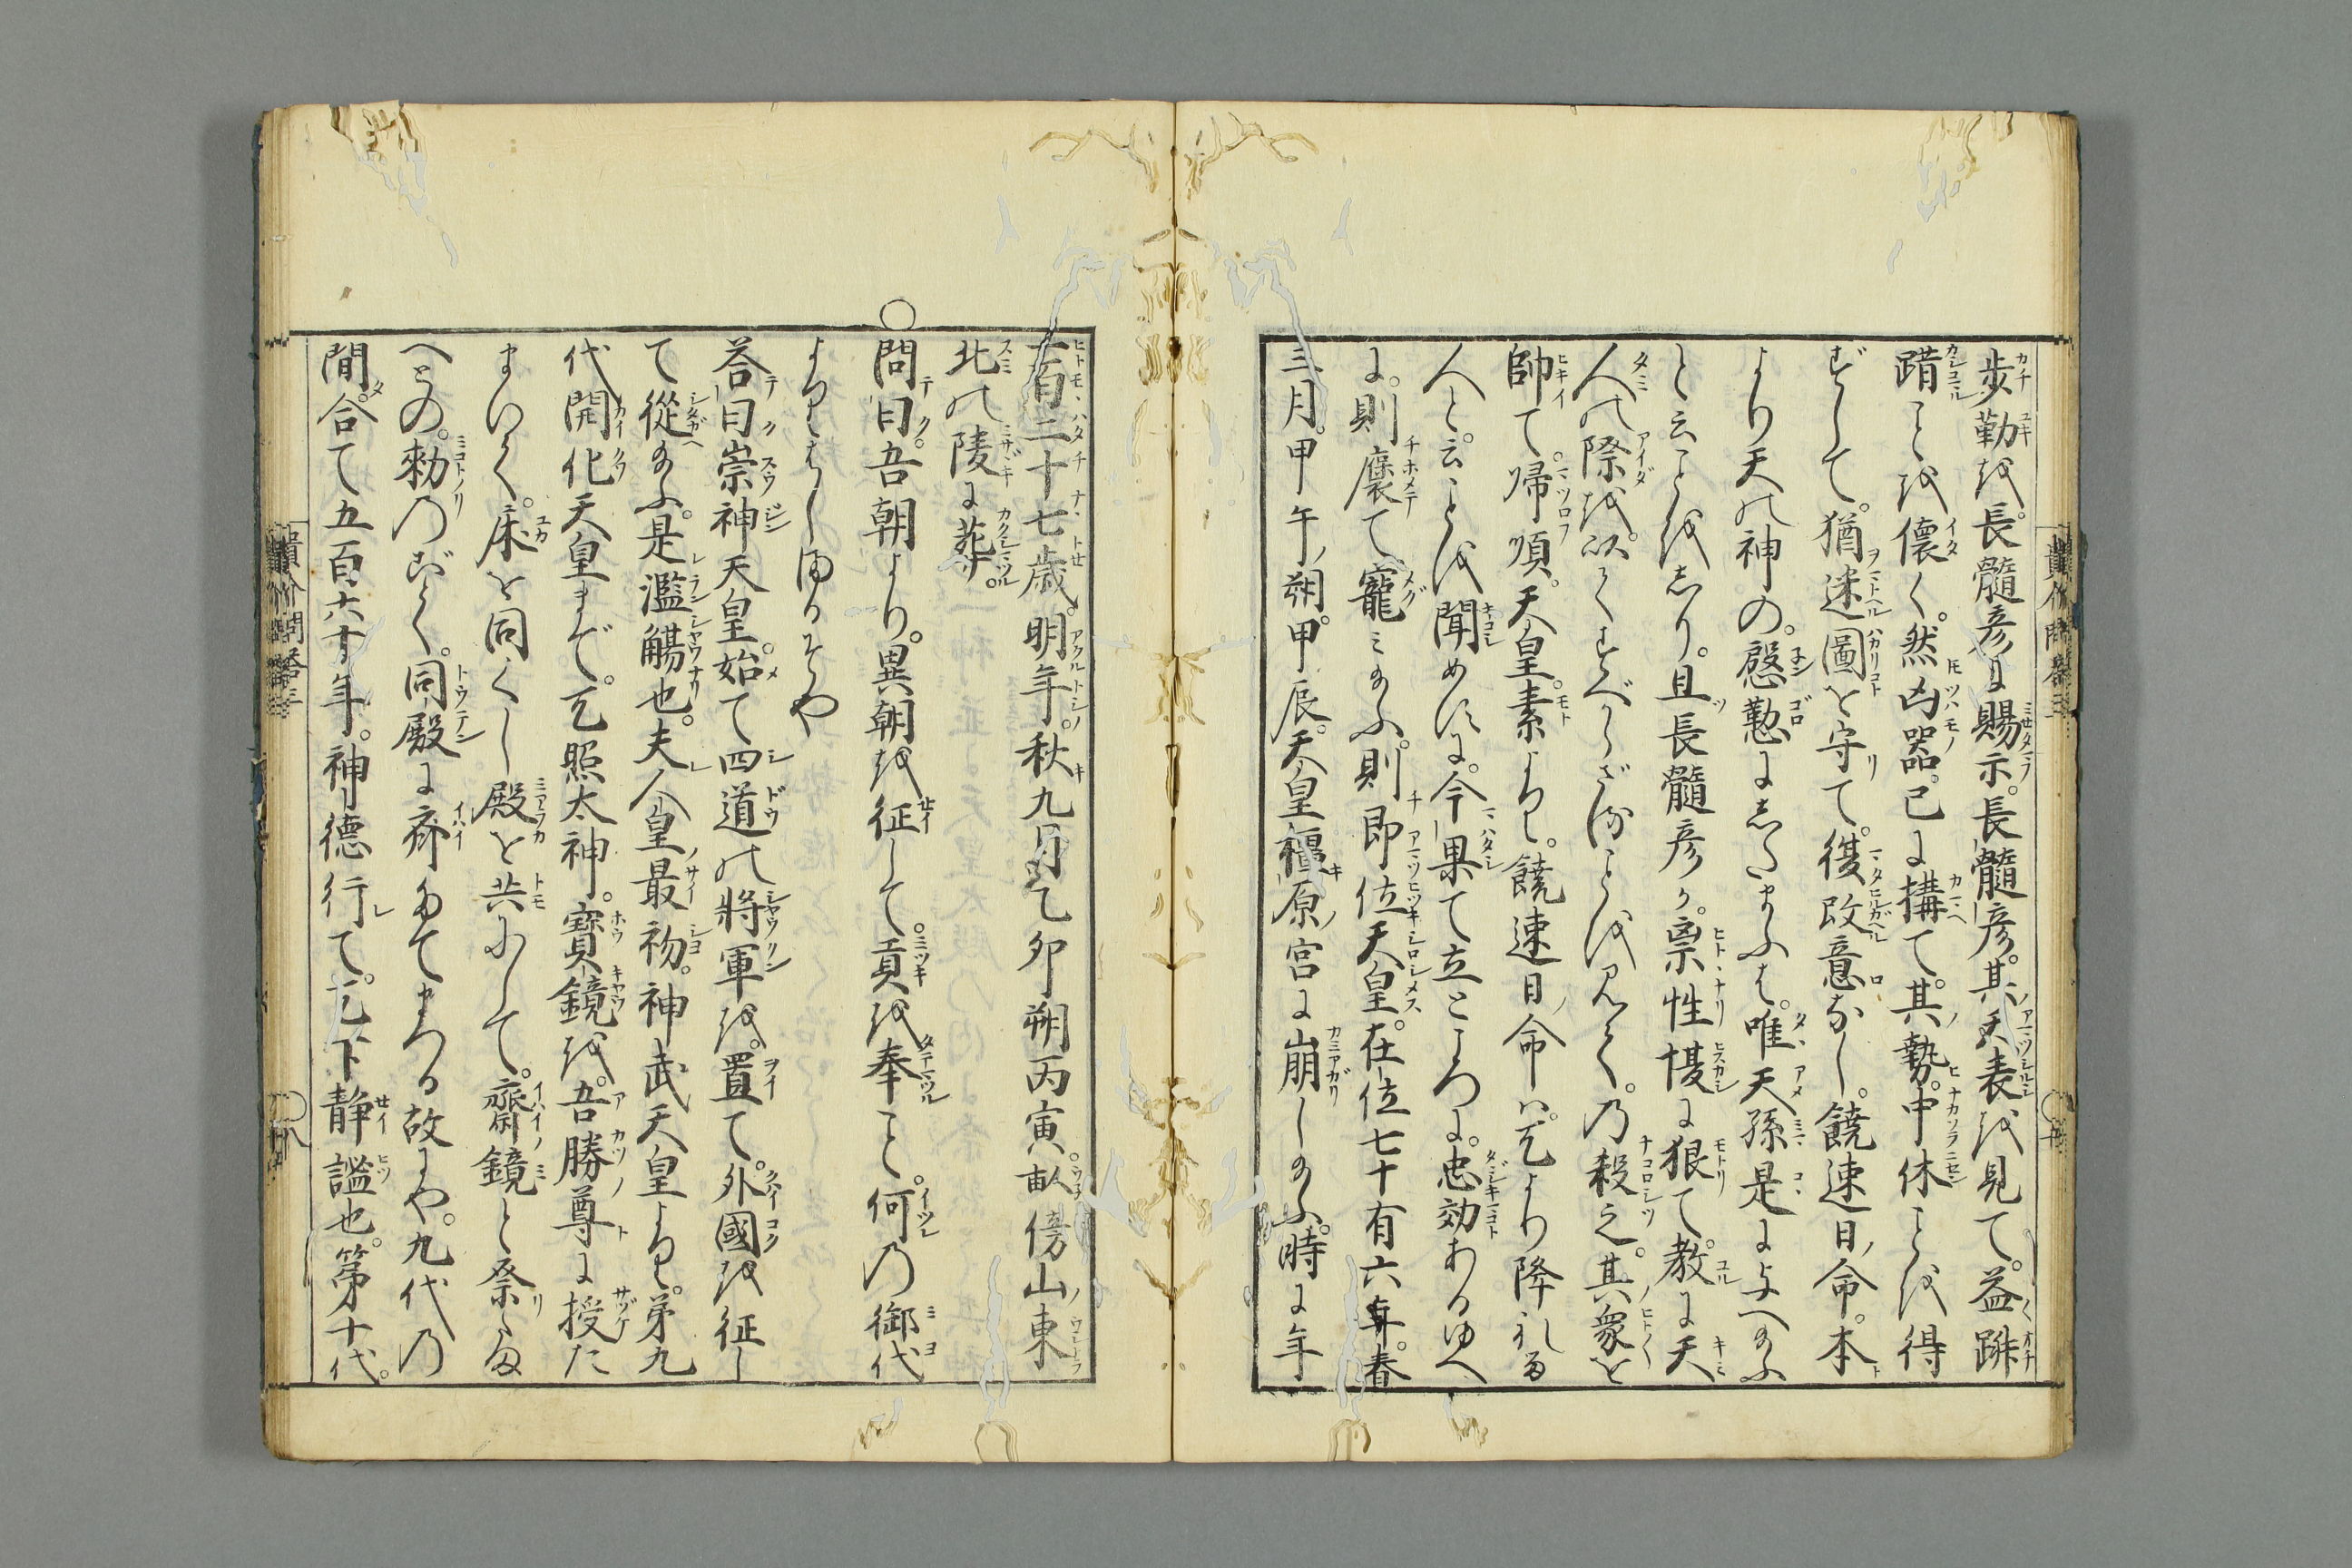 歩靫を。長髓彦に賜示。長髓彦。其天表を見て。益踧
踖ことを懐く。然凶器。已に搆て。其勢。中休ことを得
ずして。猶迷圖を守て。復改意なし。饒速日命。本
より天の神の。慇懃にしたまふは。唯天孫是に与へ玉ふ
と云ことをしり。且長髓彦が。禀性愎に狠て。教に天
人の際を。以てすべからざることを見て。乃殺之。其衆を
帥て帰順。天皇。素より。饒速日命は。天より降れる
人と。云ことを聞めすに。今果て立ところに。忠効あるゆへ
に。則褒て寵み玉ふ。則即位天皇。在位七十有六年。春
三月。甲午朔。甲辰。天皇橿原宮に崩し玉ふ。時に年
一百二十七歳。明年。秋九月乙卯朔丙寅。畝傍山東
北の陵に葬。
○問曰。吾朝より。異朝を征して。貢を奉こと。何の御代
よりはじまるぞや
答曰崇神天皇。始て四道の將軍を。置て。外國を征し
て從玉ふ。是濫觴也。夫人皇最初。神武天皇より。第九
代開化天皇まで。天照太神。寶鏡を。吾勝尊に授た
まいて。床を同くし殿を共にして。齋鏡と祭りたま
へとの。勅のごとく。同殿に齋たてまつる故にや。九代の
間。合て五百六十年。神德行て。天下静謐也。第十代。